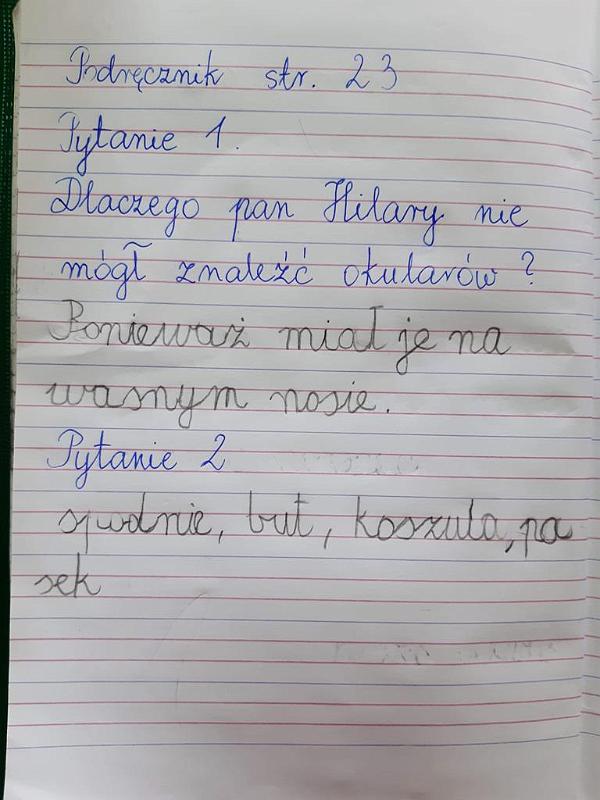 Podręcznik str. 23
Pytanie 1.
Dlaczego pan Hilary nie
mógł znaleźć okularów ?
Ponieważ miał je na
wasnym nosie.
Pytanie 2
spodnie, but, koszula, pa
sek